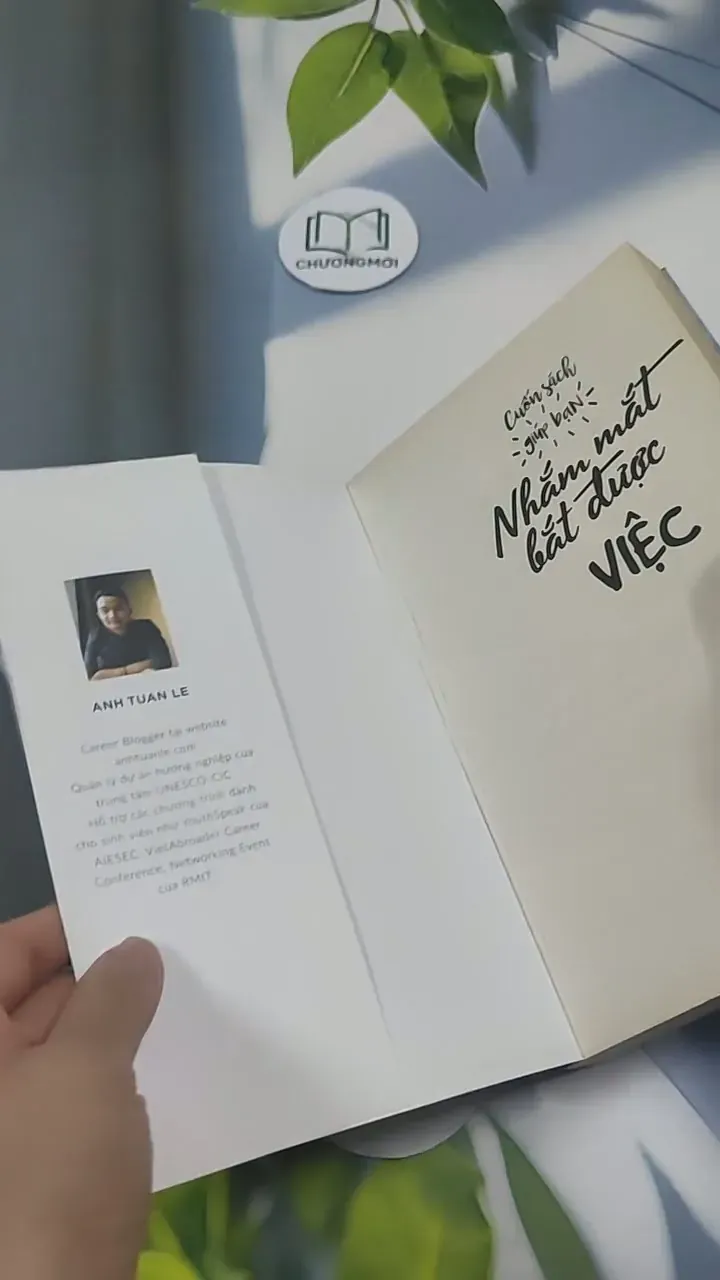 CHƯƠNG MỚI
ANH TUAN LE
Career Blogger tại website
anhtuanle.com
Quản lý dự án hướng nghiệp của
trung tâm UNESCO-CIC
Hỗ trợ các chương trình dành
cho sinh viên như YouthSpeak của
AIESEC, VietAbroader Career
Conference, Networking Event
của RMIT
Cuốn sách
giúp bạN
Nhắm mắt
bắt được
VIỆC